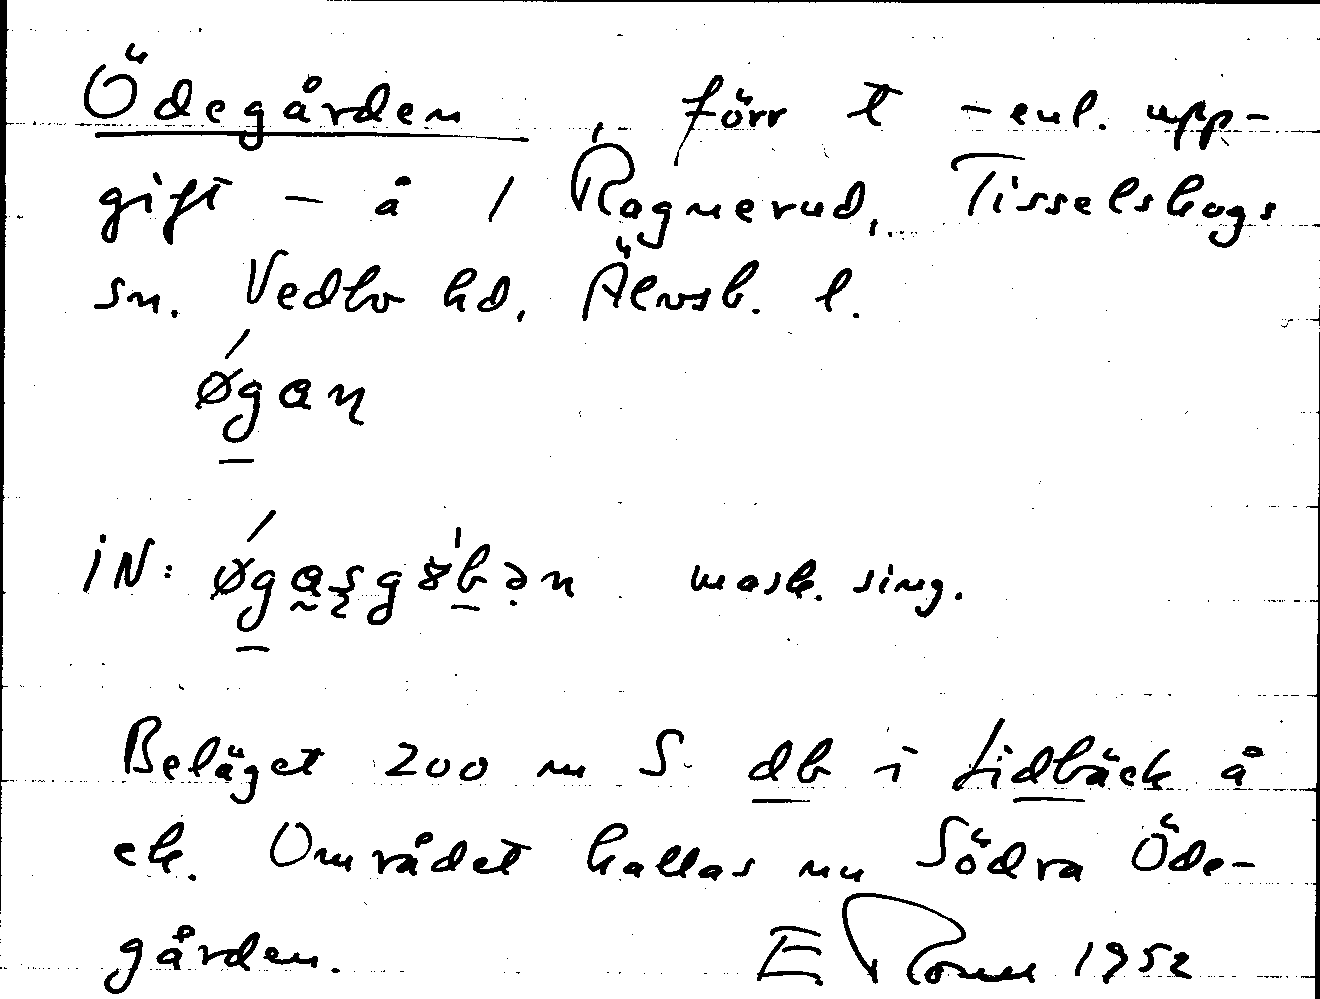 Ödegården, förr t – enl. upp-
gift – å 1 Ragnerud, Tisselskogs
sn. Vedbo hd, Älvsb. l.
øgan
iN: mask. sing.
Beläget 200 m S db i Lidbäck å
ek. Området kallas nu Södra Öde-
gården. E 1952